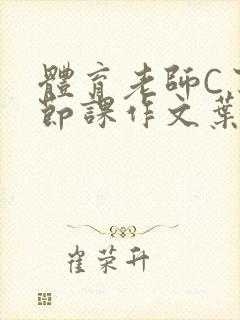 體育老師C
節課作文葉
崔荣升